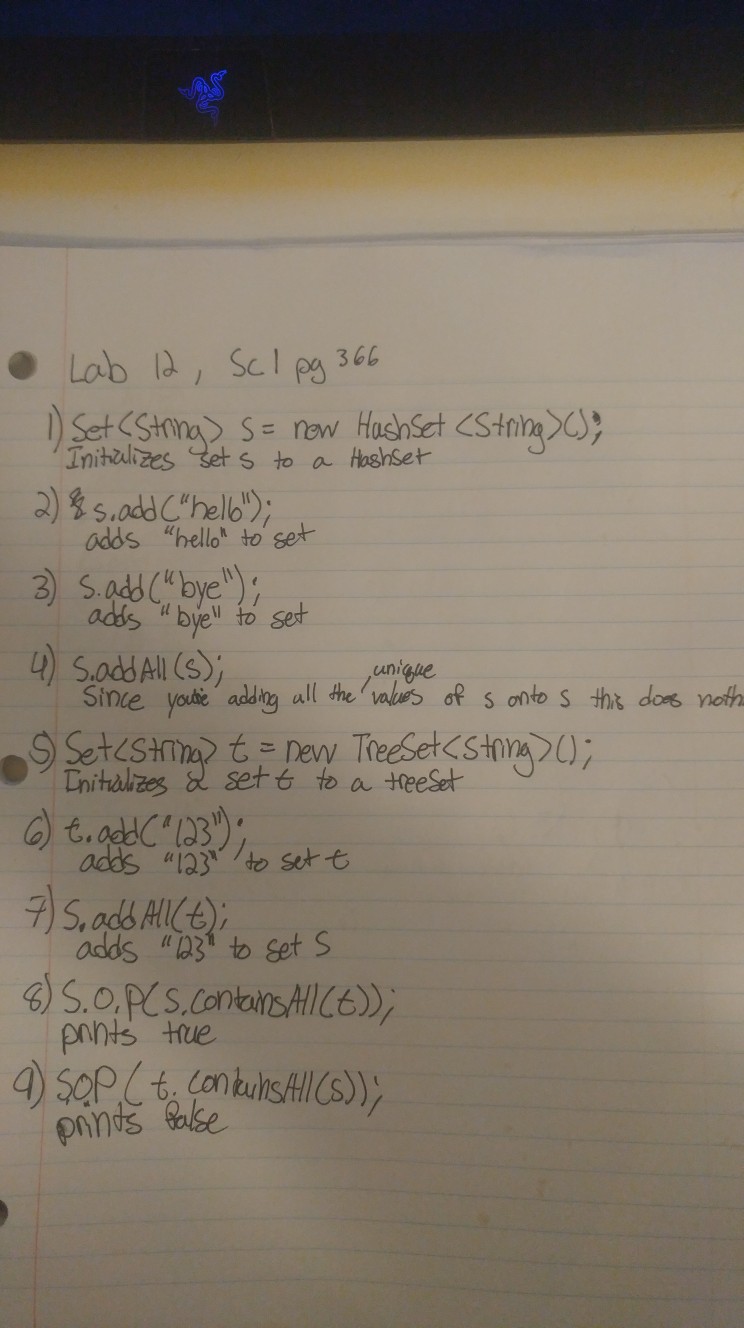 Lab 12, Sc1 pg 366
1) Set<String> s = new HashSet<String>();
Initializes set s to a HashSet
2) s.add("hello");
adds "hello" to set
3) s.add("bye");
adds "bye" to set
4) s.addAll(s);
unique
Since you're adding all the values of s onto s this does noth
5) Set<String> t = new TreeSet<String>();
Initializes a set t to a treeSet
6) t.add("123");
adds "123" to set t
7) s.addAll(t);
adds "123" to set s
8) S.O.P(s.containsAll(t));
prints true
9) S.O.P(t.containsAll(s));
prints false